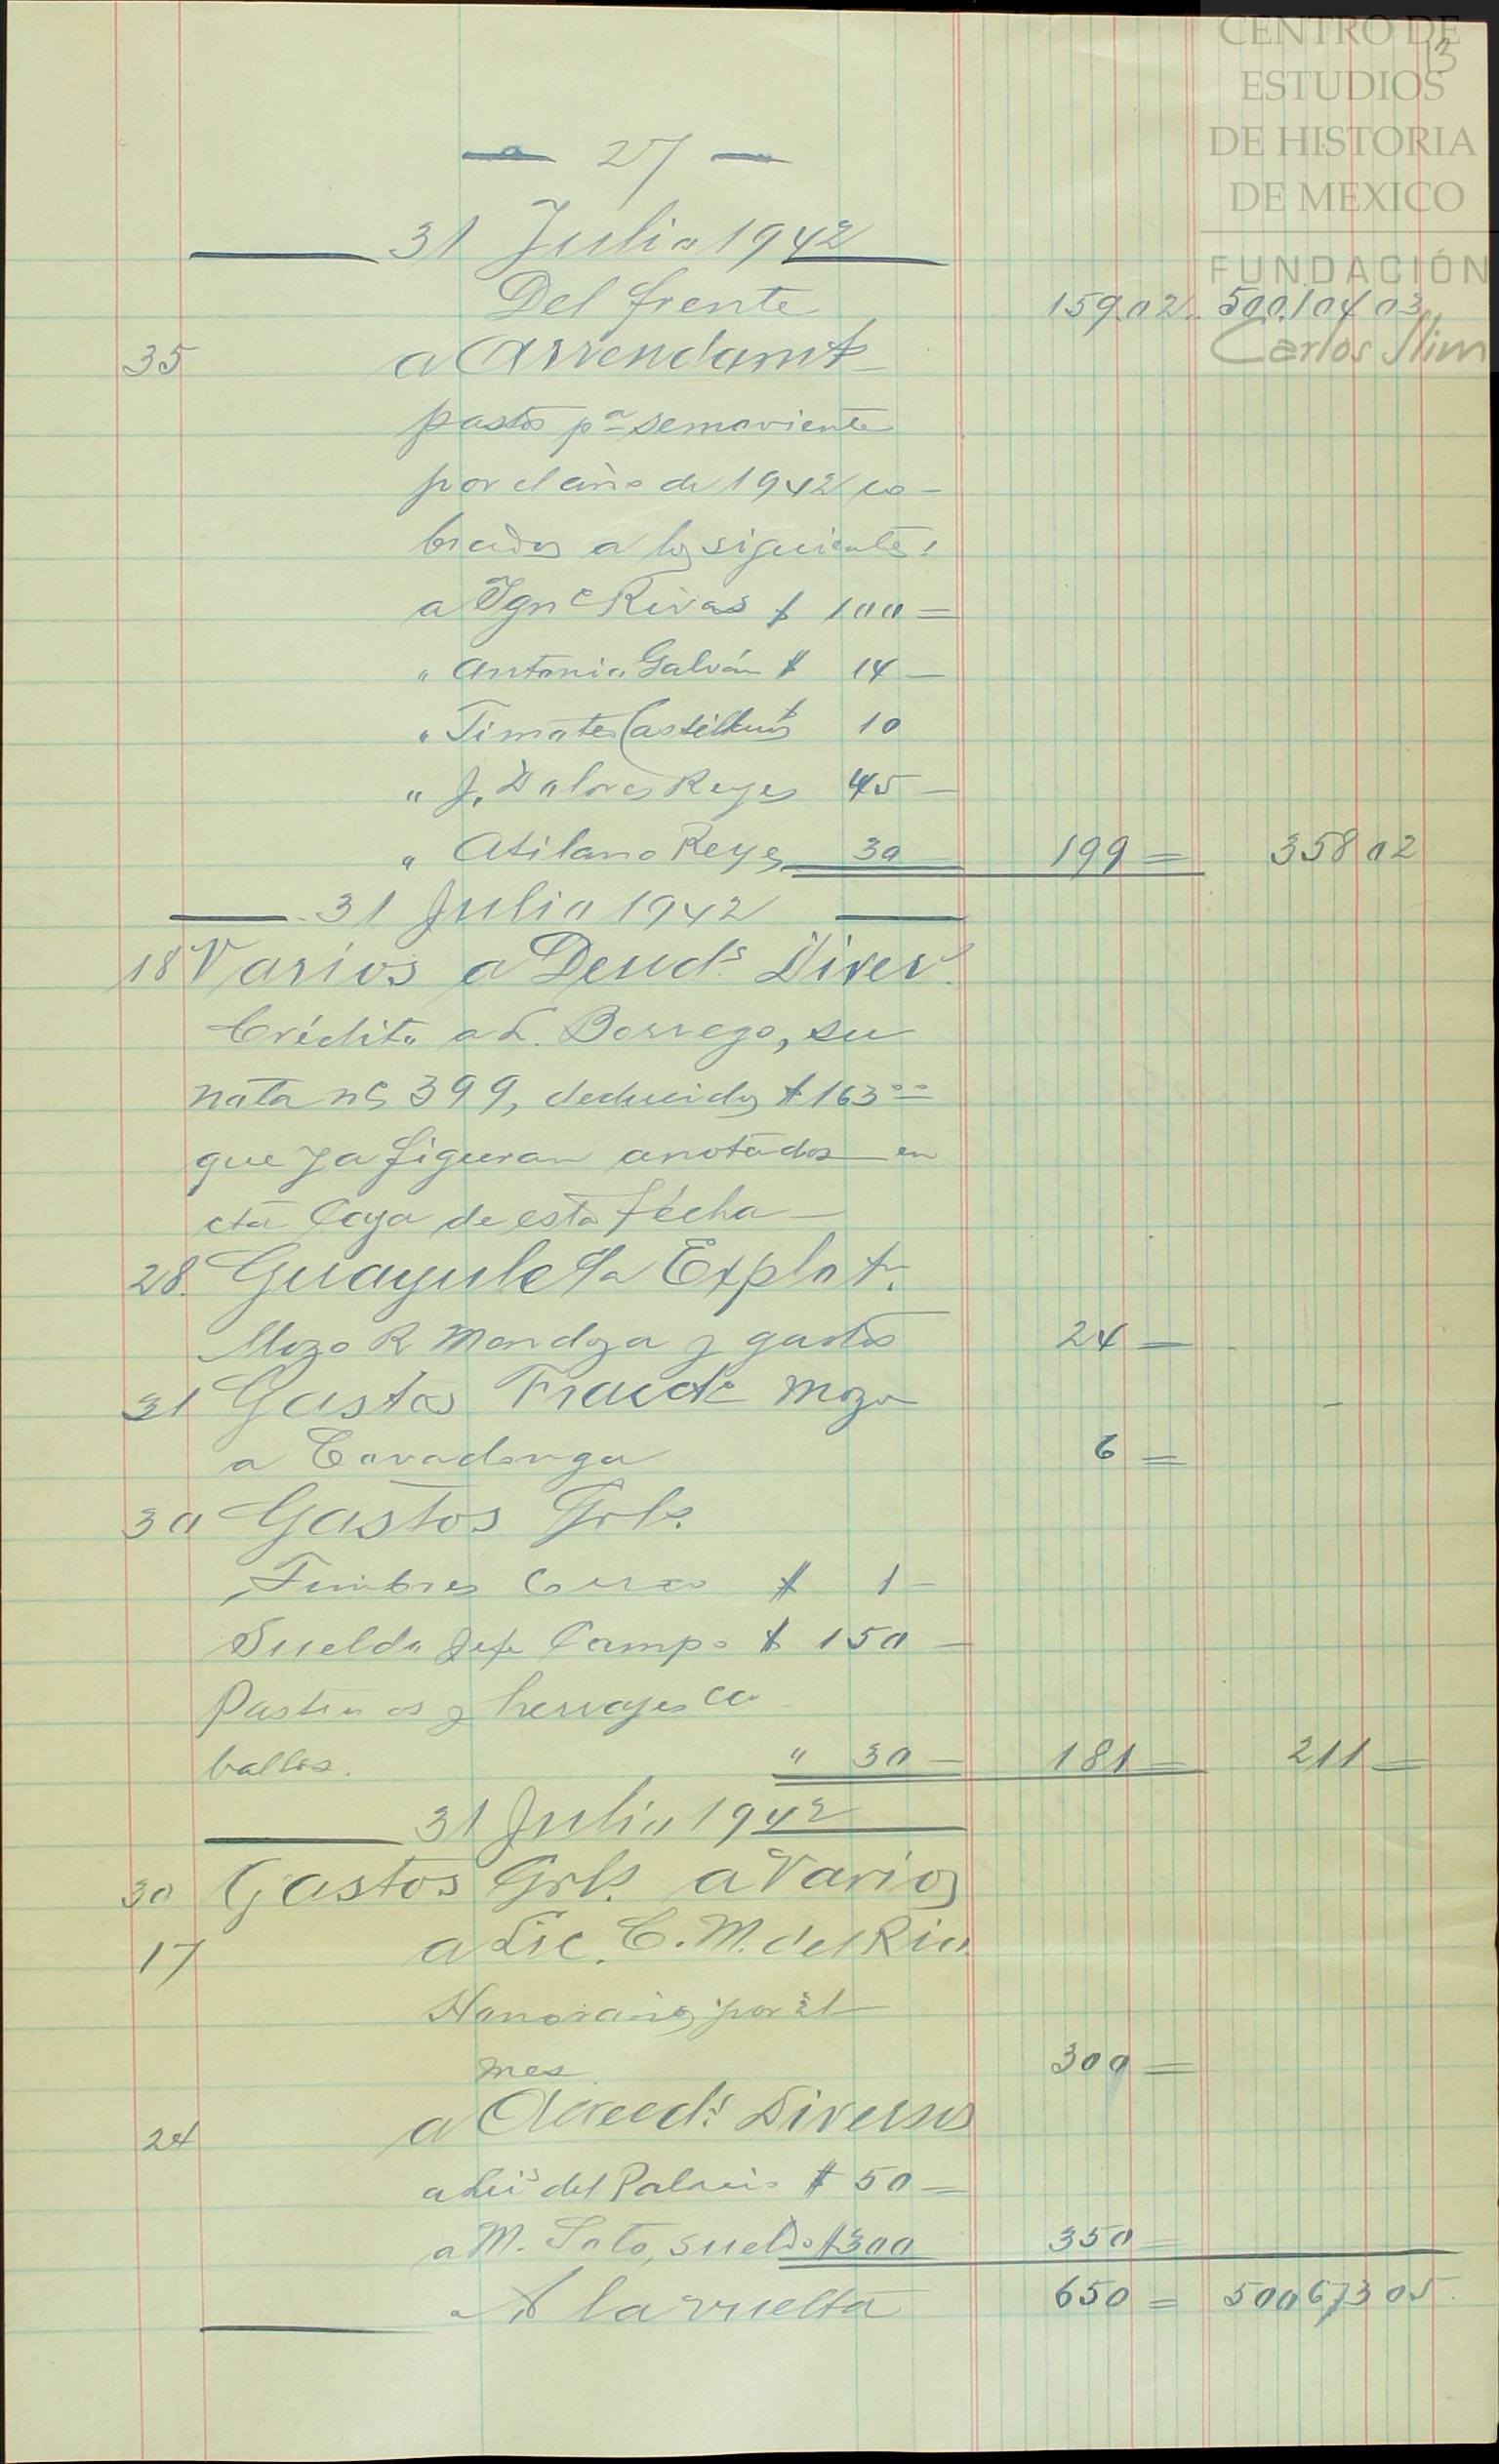 CENTRO DE
ESTUDIOS
DE HISTORIA
DE MEXICO
FUNDACIÓN
Carlos Slim
13
— 27 —
31 Julio 1942
Del frente 159.02 500.104 03
35 a Arrendamt
pastos pa semoviente
por el año de 1942 co-
brados a los siguientes:
a Ignc Rivas $ 100 =
" Antonio Galván $ 14 —
" Timoteo Castillo $ 10
" J. Dolores Reyes 45 —
" Atilano Reyes 30 — 199 = 358 02
31 Julio 1942
18 Varios a Deuds Diver.
Crédito a L. Borrego, su
nota no 399, deducidos $ 163 oo
que ya figuran anotados en
cta Caja de esta fecha —
28. Guayule Explot.
Mozo R Mendoza y gastos 24 =
31 Gastos Mozo
a Covadonga 6 =
30 Gastos Grls.
Timbres Correo $ 1 —
Sueldo Jefe Campo $ 150 —
Pasturas y herrajes ca-
ballos. " 30 — 181 = 211 =
31 Julio 1942
30 Gastos Grls. a Varios
17 a Lic. C. M. del Rio.
Honorarios por el
mes 300 =
24 a Acreeds Diversos
a Luis del Palacio $ 50 =
a M. Soto, sueldo $ 300 350 =
A la vuelta 650 = 500673 05